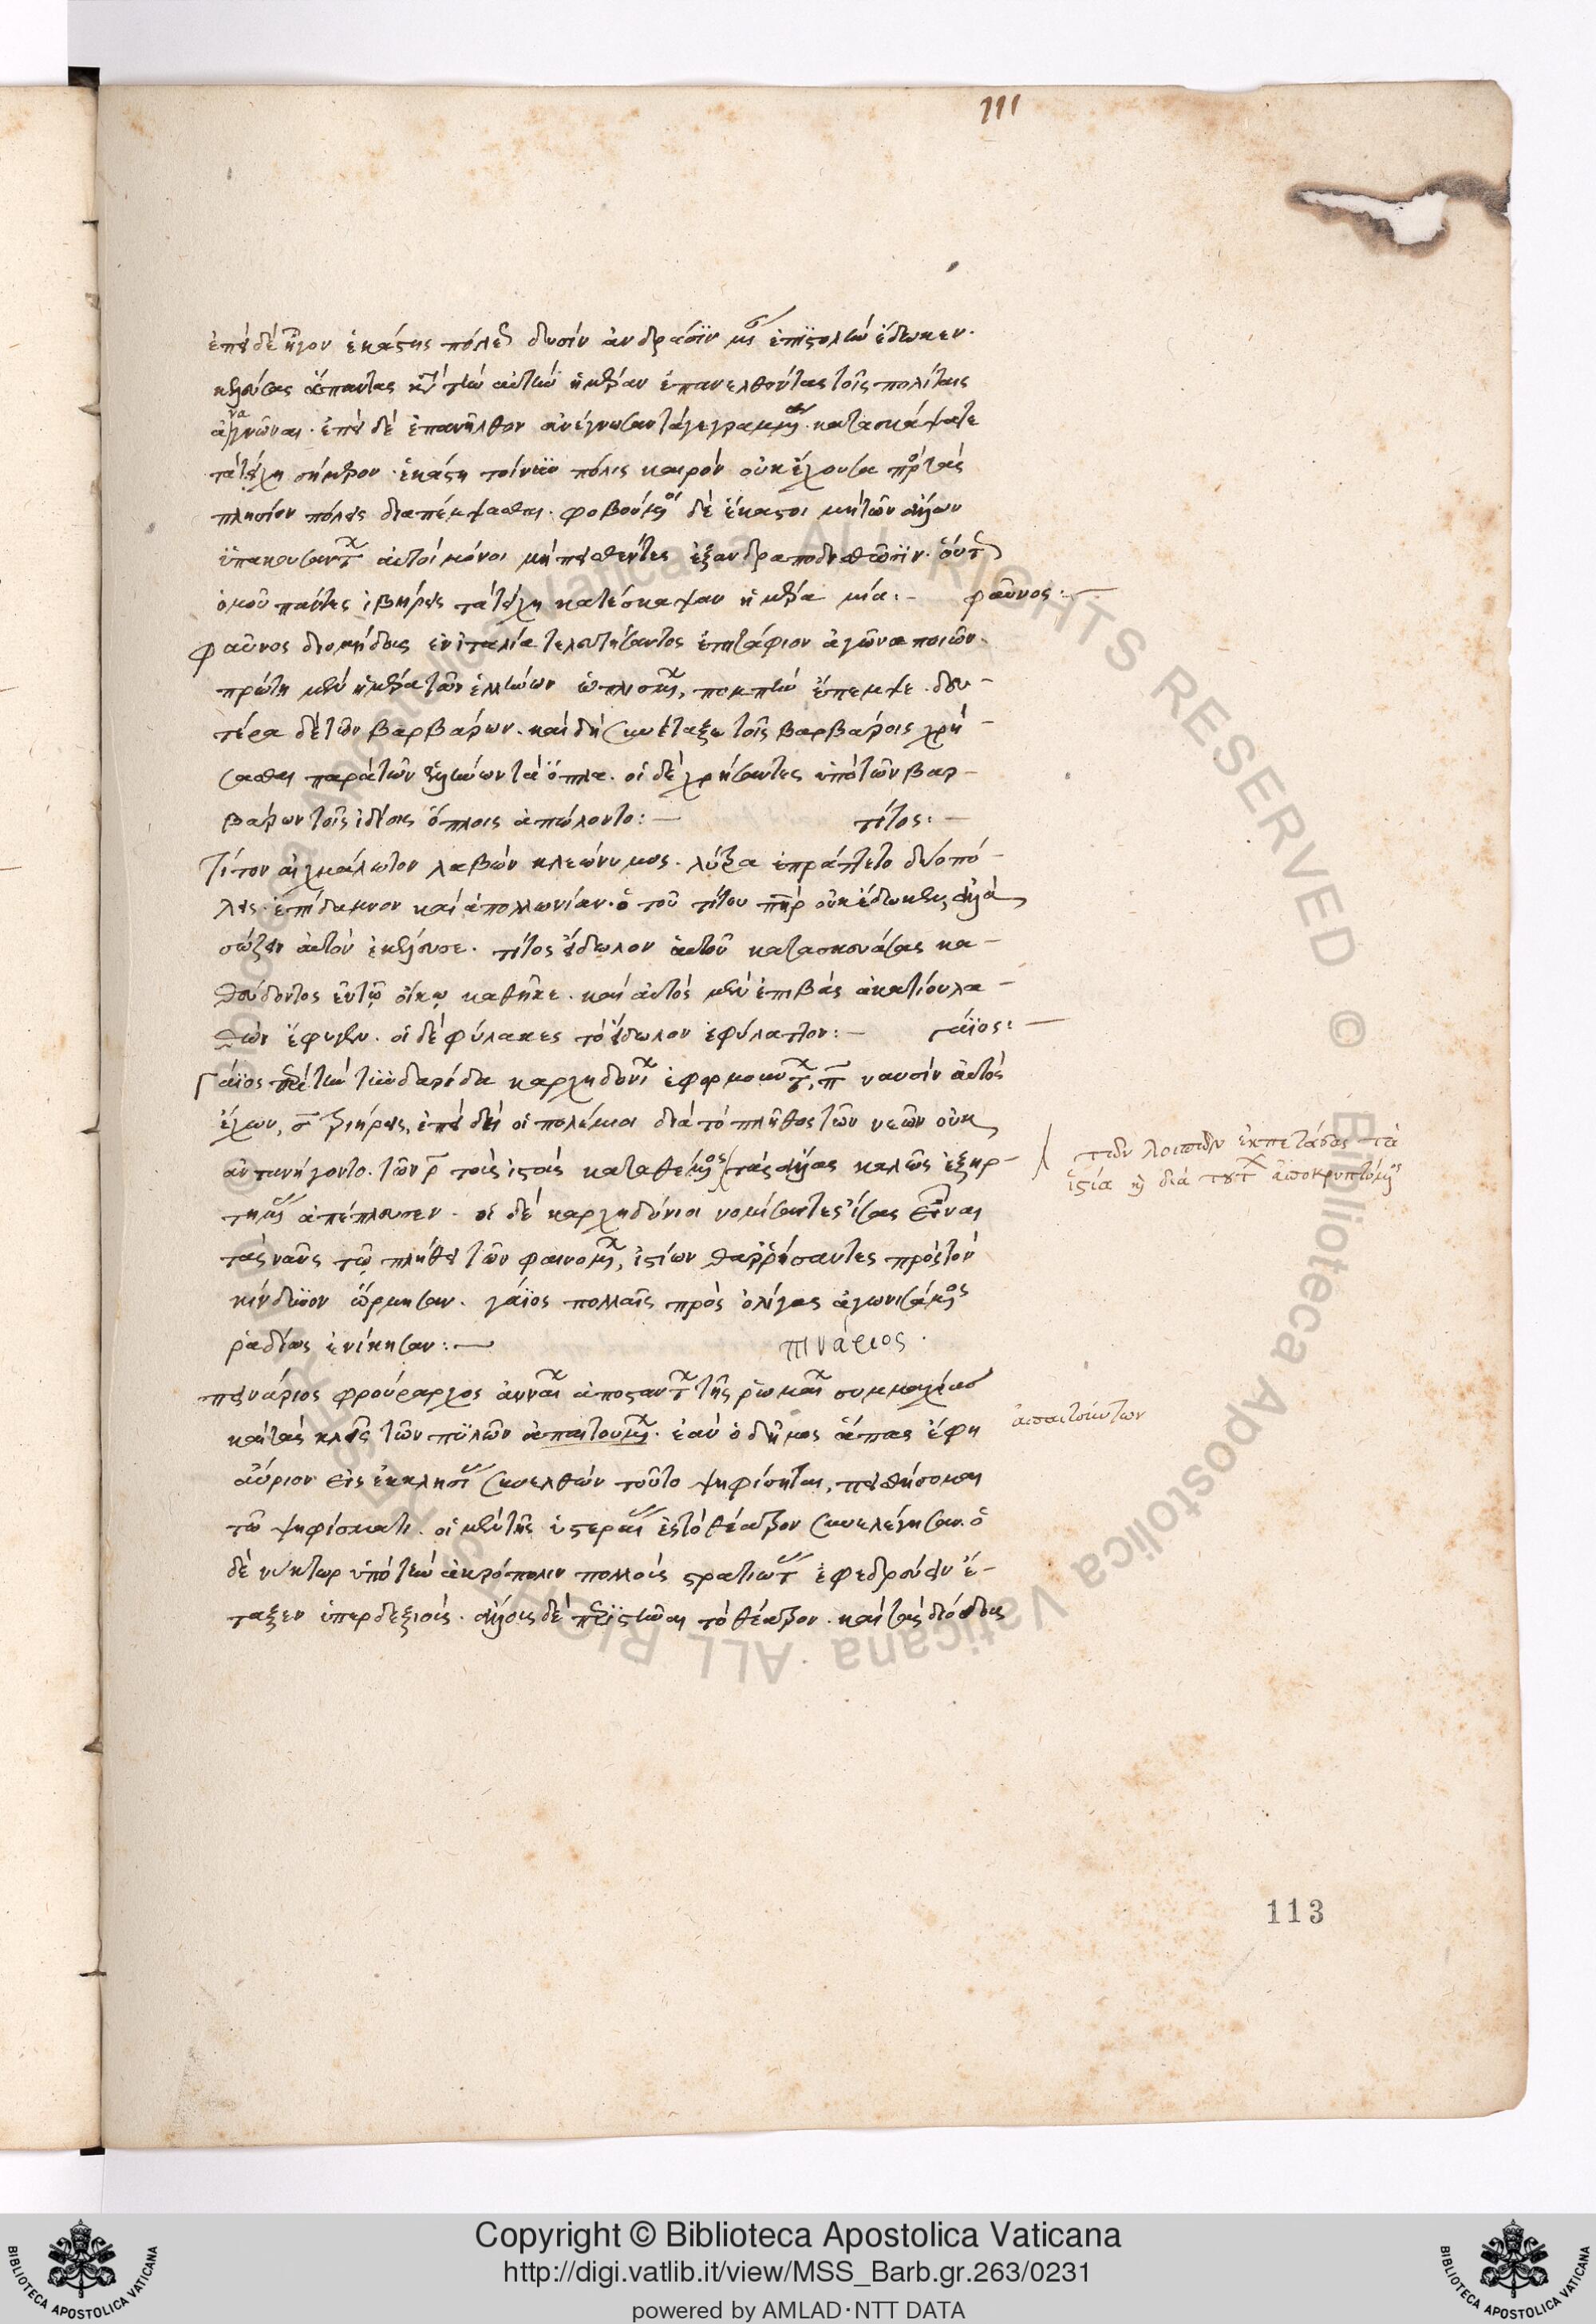 111
ἐπεὶ δὲ ἧκον ἑκάστης πόλεως δυσὶν ἀνδράσιν μίαν ἐπιστολὴν ἔδωκεν.
κελεύσας ἅπαντας κατὰ τὴν αὐτὴν ἡμέραν ἐπανελθόντας τοῖς πολίταις
ἀναγνῶναι. ἐπεὶ δὲ ἐπανῆλθον ἀνέγνωσαν τὰ γεγραμμένα. κατασκάψατε
τὰ τείχη σήμερον. ἑκάστη τοίνυν πόλις καιρὸν οὐκ ἔχουσα πρὸς τὰς
πλησίον πόλεις διαπέμψασθαι. φοβούμενοι δὲ ἕκαστοι μὴ τῶν ἄλλων
ὑπακουσάντων αὐτοὶ μόνοι μὴ πεισθέντες ἐξανδραποδισθῶσιν. οὕτως
ὁμοῦ πάντες ἴβηρες τὰ τείχη κατέσκαψαν ἡμέρα μία:- φαῦνος:-
φαῦνος διομήδους ἐν ἰταλία τελευτήσαντος ἐπιτάφιον ἀγῶνα ποιῶν.
πρώτη μὲν ἡμέρα τῶν ἑλλήνων ὡπλισμένων, πομπὴν ἔπεμψε. δευ-
τέρα δὲ τῶν βαρβάρων. καὶ δὴ συνέταξε τοῖς βαρβάροις χρή-
σασθαι παρὰ τῶν ἑλλήνων τὰ ὅπλα. οἱ δὲ χρήσαντες ὑπὸ τῶν βαρ-
βάρων τοῖς ἰδίοις ὅπλοις ἀπώλοντο:- τίτος:-
Τίτον αἰχμάλωτον λαβὼν κλεώνυμος. λύτρα ἐπράττετο δύο πό-
λεις. ἐπίδαμνον καὶ ἀπολλωνίαν. ὁ τοῦ τίτου πατὴρ οὐκ ἔδωκεν, ἀλλὰ
σώζειν αὐτὸν ἐκέλευσε. τίτος εἴδωλον αὑτοῦ κατασκευάσας κα-
θεύδοντος ἐν τῷ οἴκῳ καθῆκε. καὶ αὐτὸς μὲν ἐπιβὰς ἀκατίου λα-
θὼν ἔφυγεν. οἱ δὲ φύλακες τὸ εἴδωλον ἐφύλαττον:- γάϊος:-
Γάϊος περὶ τὴν τυνδαρίδα καρχηδονίων ἐφορμούντων, π ναυσὶν αὐτὸς
ἔχων, σ τριήρεις, ἐπειδὴ οἱ πολέμιοι διὰ τὸ πλῆθος τῶν νεῶν οὐκ
ἀντανήγοντο. τῶν ρ τοὺς ἱστοὺς καταθέμενος / τὰς ἄλλας καλῶς ἐξηρ-
τημένας ἀπέπλευσεν. οἱ δὲ καρχηδόνιοι νομίσαντες ἴσας εἶναι
τὰς ναῦς τῷ πλήθει τῶν φαινομένων, ἱστίων θαρρήσαντες πρὸς τὸν
κίνδυνον ὥρμησαν. γάϊος πολλαῖς πρὸς ὀλίγας ἀγωνισάμενος
ῥαδίως ἐνίκησαν:- πινάριος.
πινάριος φρούραρχος ἀνναίων ἀποστάντων τῆς ῥωμαίων συμμαχίας
καὶ τὰς κλεῖς τῶν πυλῶν ἀπαιτουμένων. ἐὰν ὁ δῆμος ἅπας ἔφη
αὔριον εἰς ἐκκλησίαν συνελθὼν τοῦτο ψηφίσηται, πεισθήσομαι
τῷ ψηφίσματι. οἱ μὲν τῆς ὑστεραίας εἰς τὸ θέατρον συνελέγησαν. ὁ
δὲ νύκτωρ ὑπὸ τὴν ἀκρόπολιν πολλοὺς στρατιώτας ἐφεδρεύειν ἔ-
ταξεν ὑπερδεξίοις. ἄλλοις δὲ περιστῆναι τὸ θέατρον. καὶ τὰς διόδους
τῶν λοιπῶν ἐκπετάσας τὰ
ἱστία καὶ διὰ τούτων ἀποκρυπτόμενος
ἀπαιτούντων
113
Copyright © Biblioteca Apostolica Vaticana
http://digi.vatlib.it/view/MSS_Barb.gr.263/0231
powered by AMLAD·NTT DATA